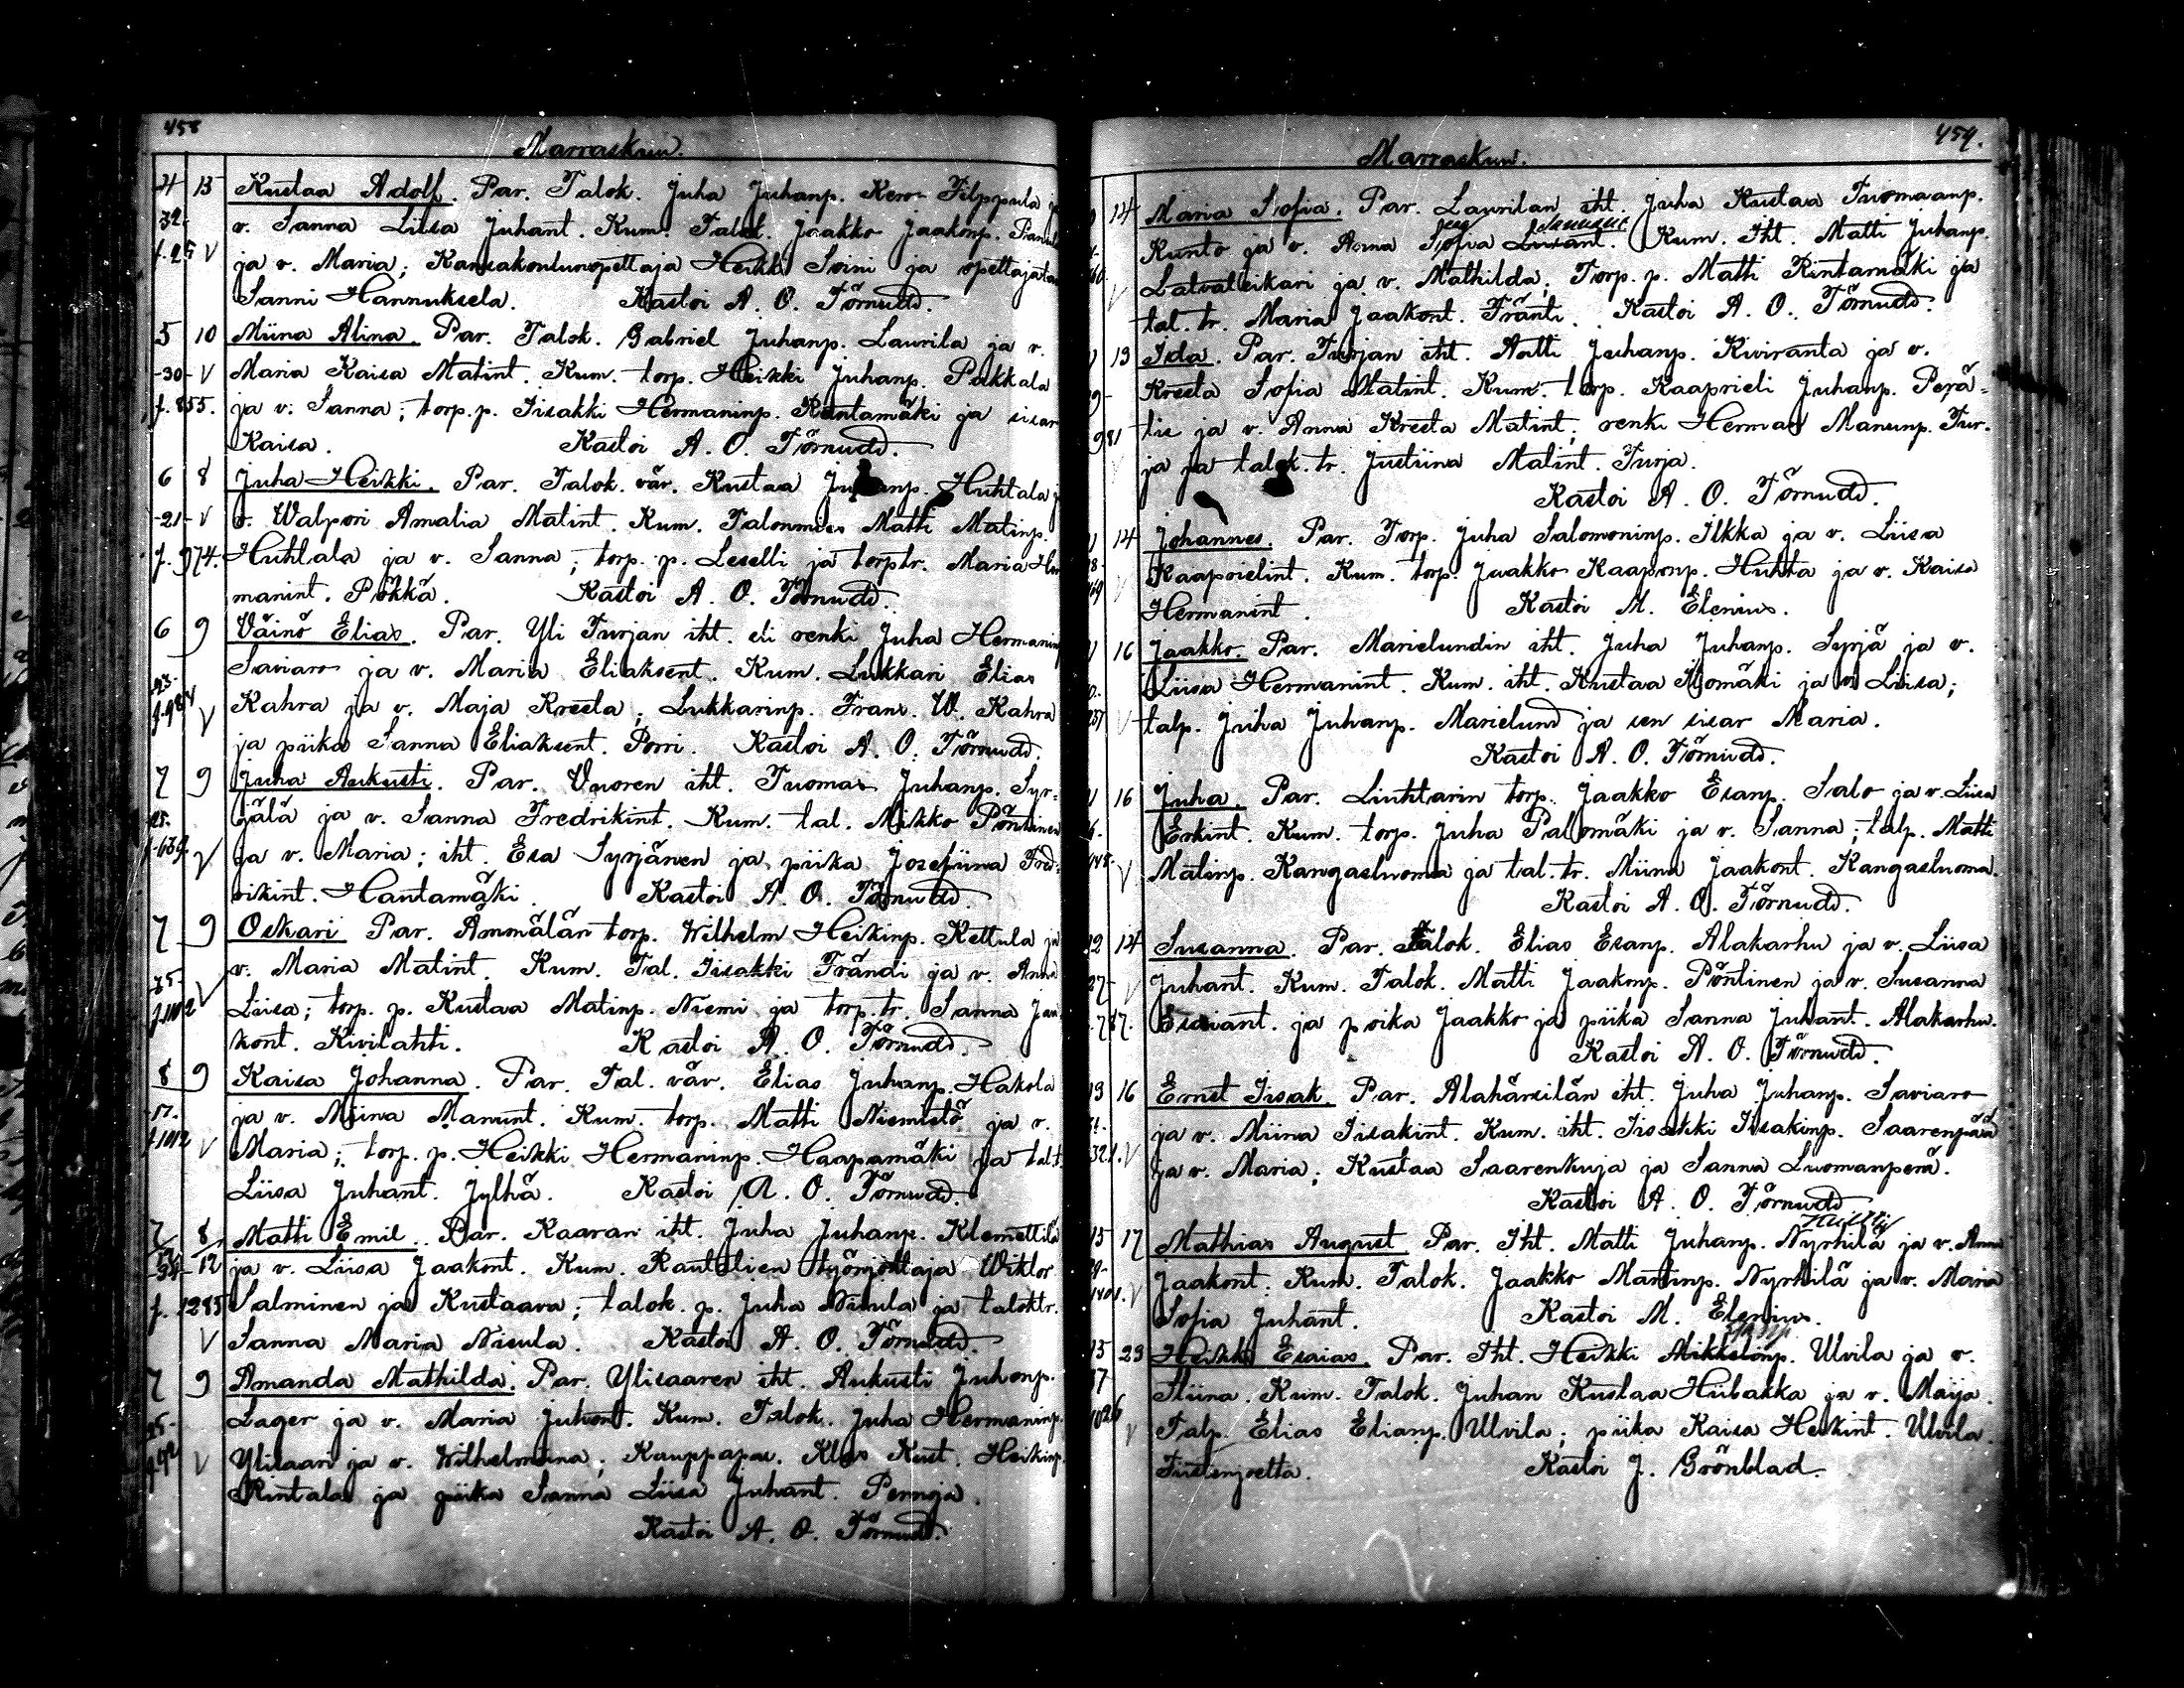 458
Marraskuu.
4 13 Kustaa Adolf. Par. Talok. Juha Juhanp. Kero Filppula
32. v. Sanna Liisa Juhant. Kum. Talok. Jaakko Jaakonp.
f. 25 V ja v. Maria; Kansakoulunopettaja Heikki Soini ja opettajatar
Sanni Hannuksela. Kastoi A. O. Törnudd.
5 10 Miina Alina. Par. Talok. Gabriel Juhanp. Laurila ja v.
-30- V Maria Kaisa Matint. Kum. torp. Heikki Juhanp. Pakkala
f. 855. ja v. Sanna; torp. p. Iisakki Hermaninp. Rintamäki ja sisar
Kaisa. Kastoi A. O. Törnudd.
6 8 Juha Heikki. Par. Talok. väv. Kustaa Juhanp. Huhtala
-21- V v. Walpori Amalia Matint. Kum. Talonmies Matti Matinp.
f. 974. Huhtala ja v. Sanna; torp. p. Leselli ja torp tr. Maria Her
manint. Pökkä. Kastoi A. O. Törnudd.
6 9 Väinö Elias. Par. Yli Turjan iht. eli renki Juha Hermaninp
Saviaro ja v. Maria Eliaksent. Kum. Lukkari Elias
V Kahra ja v. Maja Kreeta; Lukkarinp. Frans. W. Kahra
ja piika Sanna Eliaksent. Porri. Kastoi A. O. Törnudd.
7 9 Juha Aukusti. Par. Vuoren iht. Tuomas Juhanp. Syr-
25. jälä ja v. Sanna Fredrikint. Kum. tal. Mikko Pöntinen
f. 639. V ja v. Maria; iht. Esa Syrjänen ja piika Josefiina Fred-
rikint. Hantamäki. Kastoi A. O. Törnudd.
7 9 Oskari Par. Ammälän torp. Wilhelm Heikinp. Kettula ja
-35- V v. Maria Matint. Kum. Tal. Iisakki Trändi ja v. Anna
Liisa; torp. p. Kustaa Matinp. Niemi ja torp. tr. Sanna Jaa
kont. Kivilahti. Kastoi A. O. Törnudd.
8 9 Kaisa Johanna. Par. Tal. väv. Elias Juhanp. Hakola
ja v. Miina Manunt. Kum. torp. Matti Niemistö ja v.
f. 1012 V Maria; torp. p. Heikki Hermaninp. Haapamäki ja tal t
Liisa Juhant. Jylhä. Kastoi A. O. Törnudd.
7 8 Matti Emil. Par. Kaaran iht. Juha Juhanp. Klemettilä
12 ja v. Liisa Jaakont. Kum. Rautatien työnjohtaja Wiktor
f. 1285 Salminen ja Kustaava; talok. p. Juha Nisula ja taloktr.
V Sanna Maria Nisula. Kastoi A. O. Törnudd.
7 9 Amanda Mathilda. Par. Ylisaaren iht. Aukusti Juhonp.
25- Lager ja v. Maria Juhont. Kum. Talok. Juha Hermaninp.
V Ylisaari ja v. Wilhelmiina; Kauppapav. Klas Kust. Heikinp.
Rintala ja piika Sanna Liisa Juhant. Pernoja.
Kastoi A. O. Törnudd.
459.
Marraskuu.
14 Maria Sofia. Par. Laurilan iht. Juha Kustaa Tuomaanp.
Kunto ja v. Anna Sofia Kum. Iht. Matti Juhanp.
Latvateikari ja v. Mathilda. Torp. p. Matti Rintamäki ja
V tal. tr. Maria Jaakont. Tränti. Kastoi A. O. Törnudd.
13 Ida. Par. Turjan iht. Antti Juhanp. Kiviranta ja v.
9- Kreeta Sofia Matint. Kum. torp. Kaaprieli Juhanp. Perä-
981 tie ja v. Anna Kreeta Matint; renki Herman Manunp. Tur-
ja ja talok. tr. Justiina Matint. Turja.
Kastoi A. O. Törnudd.
14 Johannes. Par. Torp. Juha Salomoninp. Ilkka ja v. Liisa
8- Kaaprielint. Kum. torp. Jaakko Kaaponp. Huhta ja v. Kaisa
Hermanint. Kastoi M. Elenius.
16 Jaakko. Par. Marielundin iht. Juha Juhanp. Syrjä ja v.
Liisa Hermanint. Kum. iht. Kustaa Ilomäki ja v. Liisa;
V talp. Juha Juhanp. Marielund ja sen sisar Maria.
Kastoi A. O. Törnudd.
16 Juha. Par. Linhtarin torp. Jaakko Esanp. Salo ja v. Liisa
Erkint. Kum. torp. Juha Palomäki ja v. Sanna; talp. Matti
V Matinp. Kangasluoma ja tal. tr. Miina Jaakont. Kangasluoma.
Kastoi A. O. Törnudd.
12 14 Susanna. Par. Talok. Elias Esanp. Alakarhu ja v. Liisa
27- V Juhant. Kum. Talok. Matti Jaakonp. Pöntinen ja v. Susanna
787. Esaiant. ja poika Jaakko ja piika Sanna Juhant. Alakarhu.
Kastoi A. O. Törnudd.
13 16 Ernst Iisak. Par. Alahärsilän iht. Juha Juhanp. Saviaro
ja v. Miina Iisakint. Kum. iht. Iisakki Iisakinp. Saarenpää
V ja v. Maria; Kustaa Saarenkuja ja Sanna Luomanperä.
Kastoi A. O. Törnudd
15 17 Mathias August. Par. Iht. Matti Juhanp. Nyrhilä ja v. Anna
Jaakont. Kum. Talok. Jaakko Martinp. Nyrhilä ja v. Maria
V Sofia Juhant. Kastoi M. Elenius.
15 23 Heikki Esaias. Par. Iht. Heikki Mikkelinp. Ulvila ja v.
Stiina. Kum. Talok. Juhan Kustaa Hiibakka ja v. Maija.
V Talp. Elias Elianp. Ulvila; piika Kaisa Heikint. Ulvila.
Kastoi J. Grönblad.